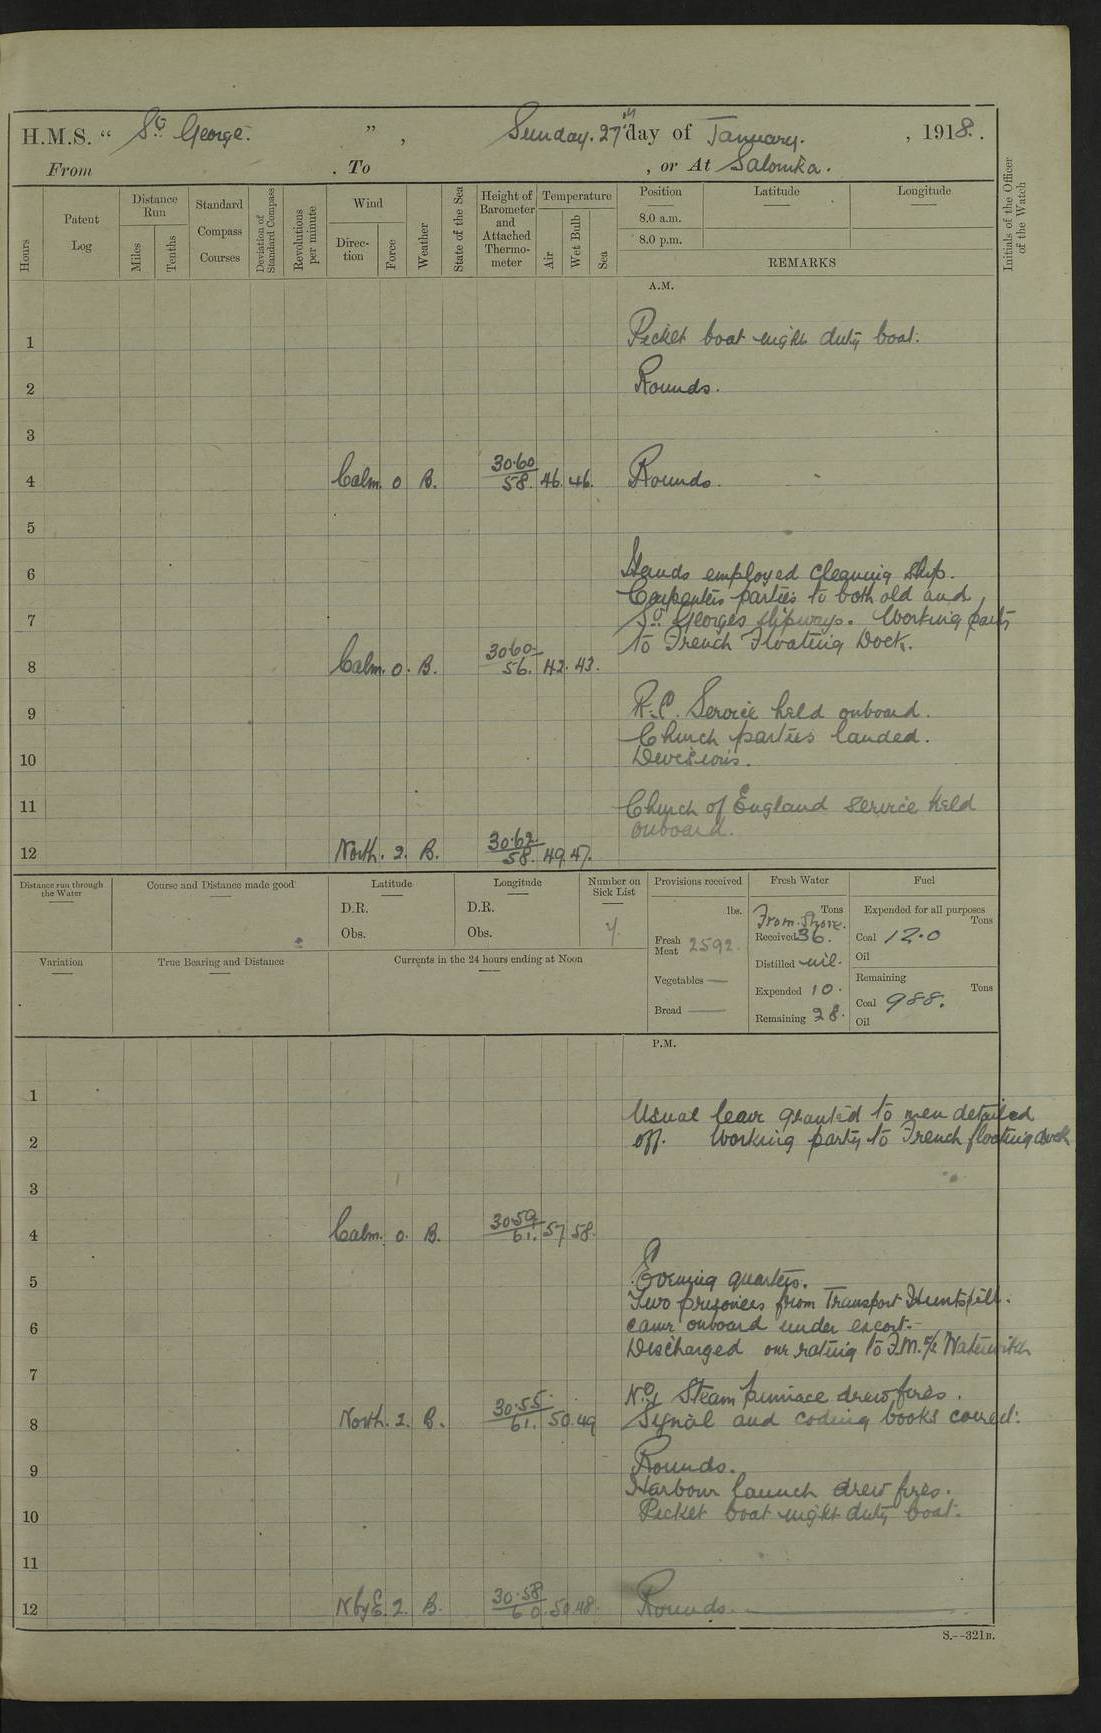 H.M.S. " St. George. ", Sunday. 27th day of January. , 1918.
From . To , or At Salonika.
Hours
Patent Log
Distance Run
Miles
Tenths
Standard Compass Courses
Deviation of Standard Compass
Revolutions per minute
Wind
Direc-tion
Force
Weather
State of the Sea
Height of Barometer and Attached Thermo-meter
Temperature
Air
Wet Bulb
Sea
Position
Latitude
Longitude
8.0 a.m.
8.0 p.m.
REMARKS
Initials of the Officer of the Watch
A.M.
1 Picket boat night duty boat.
2 Rounds.
3
4 Calm. 0 B. 30.60 58. 46. 46. Rounds.
5
6 Hands employed cleaning ship.
Carpenters parties to both old and
7 St. Georges slipways. Working party
to French Floating Dock.
8 Calm. 0. B. 30.60 56. 42. 43.
9 R.C. Service held onboard.
Church parties landed.
10 Divisions.
11 Church of England service held
onboard.
12 North. 2. B. 30.62. 58. 49. 47.
Distance run through the Water
Course and Distance made good
Latitude
D.R.
Obs.
Longitude
D.R.
Obs.
Number on Sick List
4.
Provisions received
lbs.
Fresh Meat 2592.
Vegetables —
Bread —
Fresh Water
Tons
From Shore.
Received 36.
Distilled nil.
Expended 10.
Remaining 28.
Fuel
Expended for all purposes
Tons
Coal 12.0
Oil
Remaining
Tons
Coal 988.
Oil
Variation
True Bearing and Distance
Currents in the 24 hours ending at Noon
P.M.
1 Usual leave granted to men detailed
2 off. Working party to French floating dock
3
4 Calm. 0. B. 30.59 61. 57 58.
5 Evening quarters.
Two prisoners from Transport Huntspill.
6 came onboard under escort.
Discharged one rating to F.M. S/S Waterwitch
7 No. 1 Steam pinnace drew fires.
8 North. 2. B. 30.55. 61. 50. 49 Signal and coding books correct.
9 Rounds.
Harbour launch drew fires.
10 Picket boat night duty boat.
11
12 N by E. 2. B. 30.58 60. 50. 48. Rounds.
S.--321B.